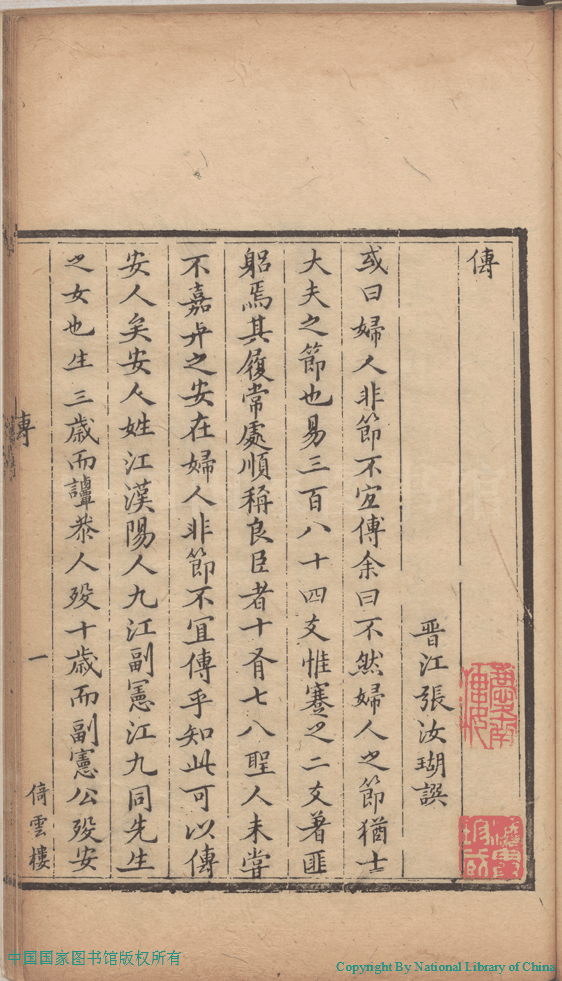 傳
晋江張汝瑚譔
或曰婦人非節不宜傳余曰不然婦人之節猶士
大夫之節也易三百八十四爻惟蹇之二爻著匪
躳焉其履常處順稱良臣者十有七八聖人未嘗
不嘉與之安在婦人非節不宜傳乎知此可以傳
安人矣安人姓江漢陽人九江副憲江九同先生
之女也生三歳而譚恭人殁十歳而副憲公殁安
傳
一
倚雲樓
中国国家图书馆版权所有
Copyright By National Library of China